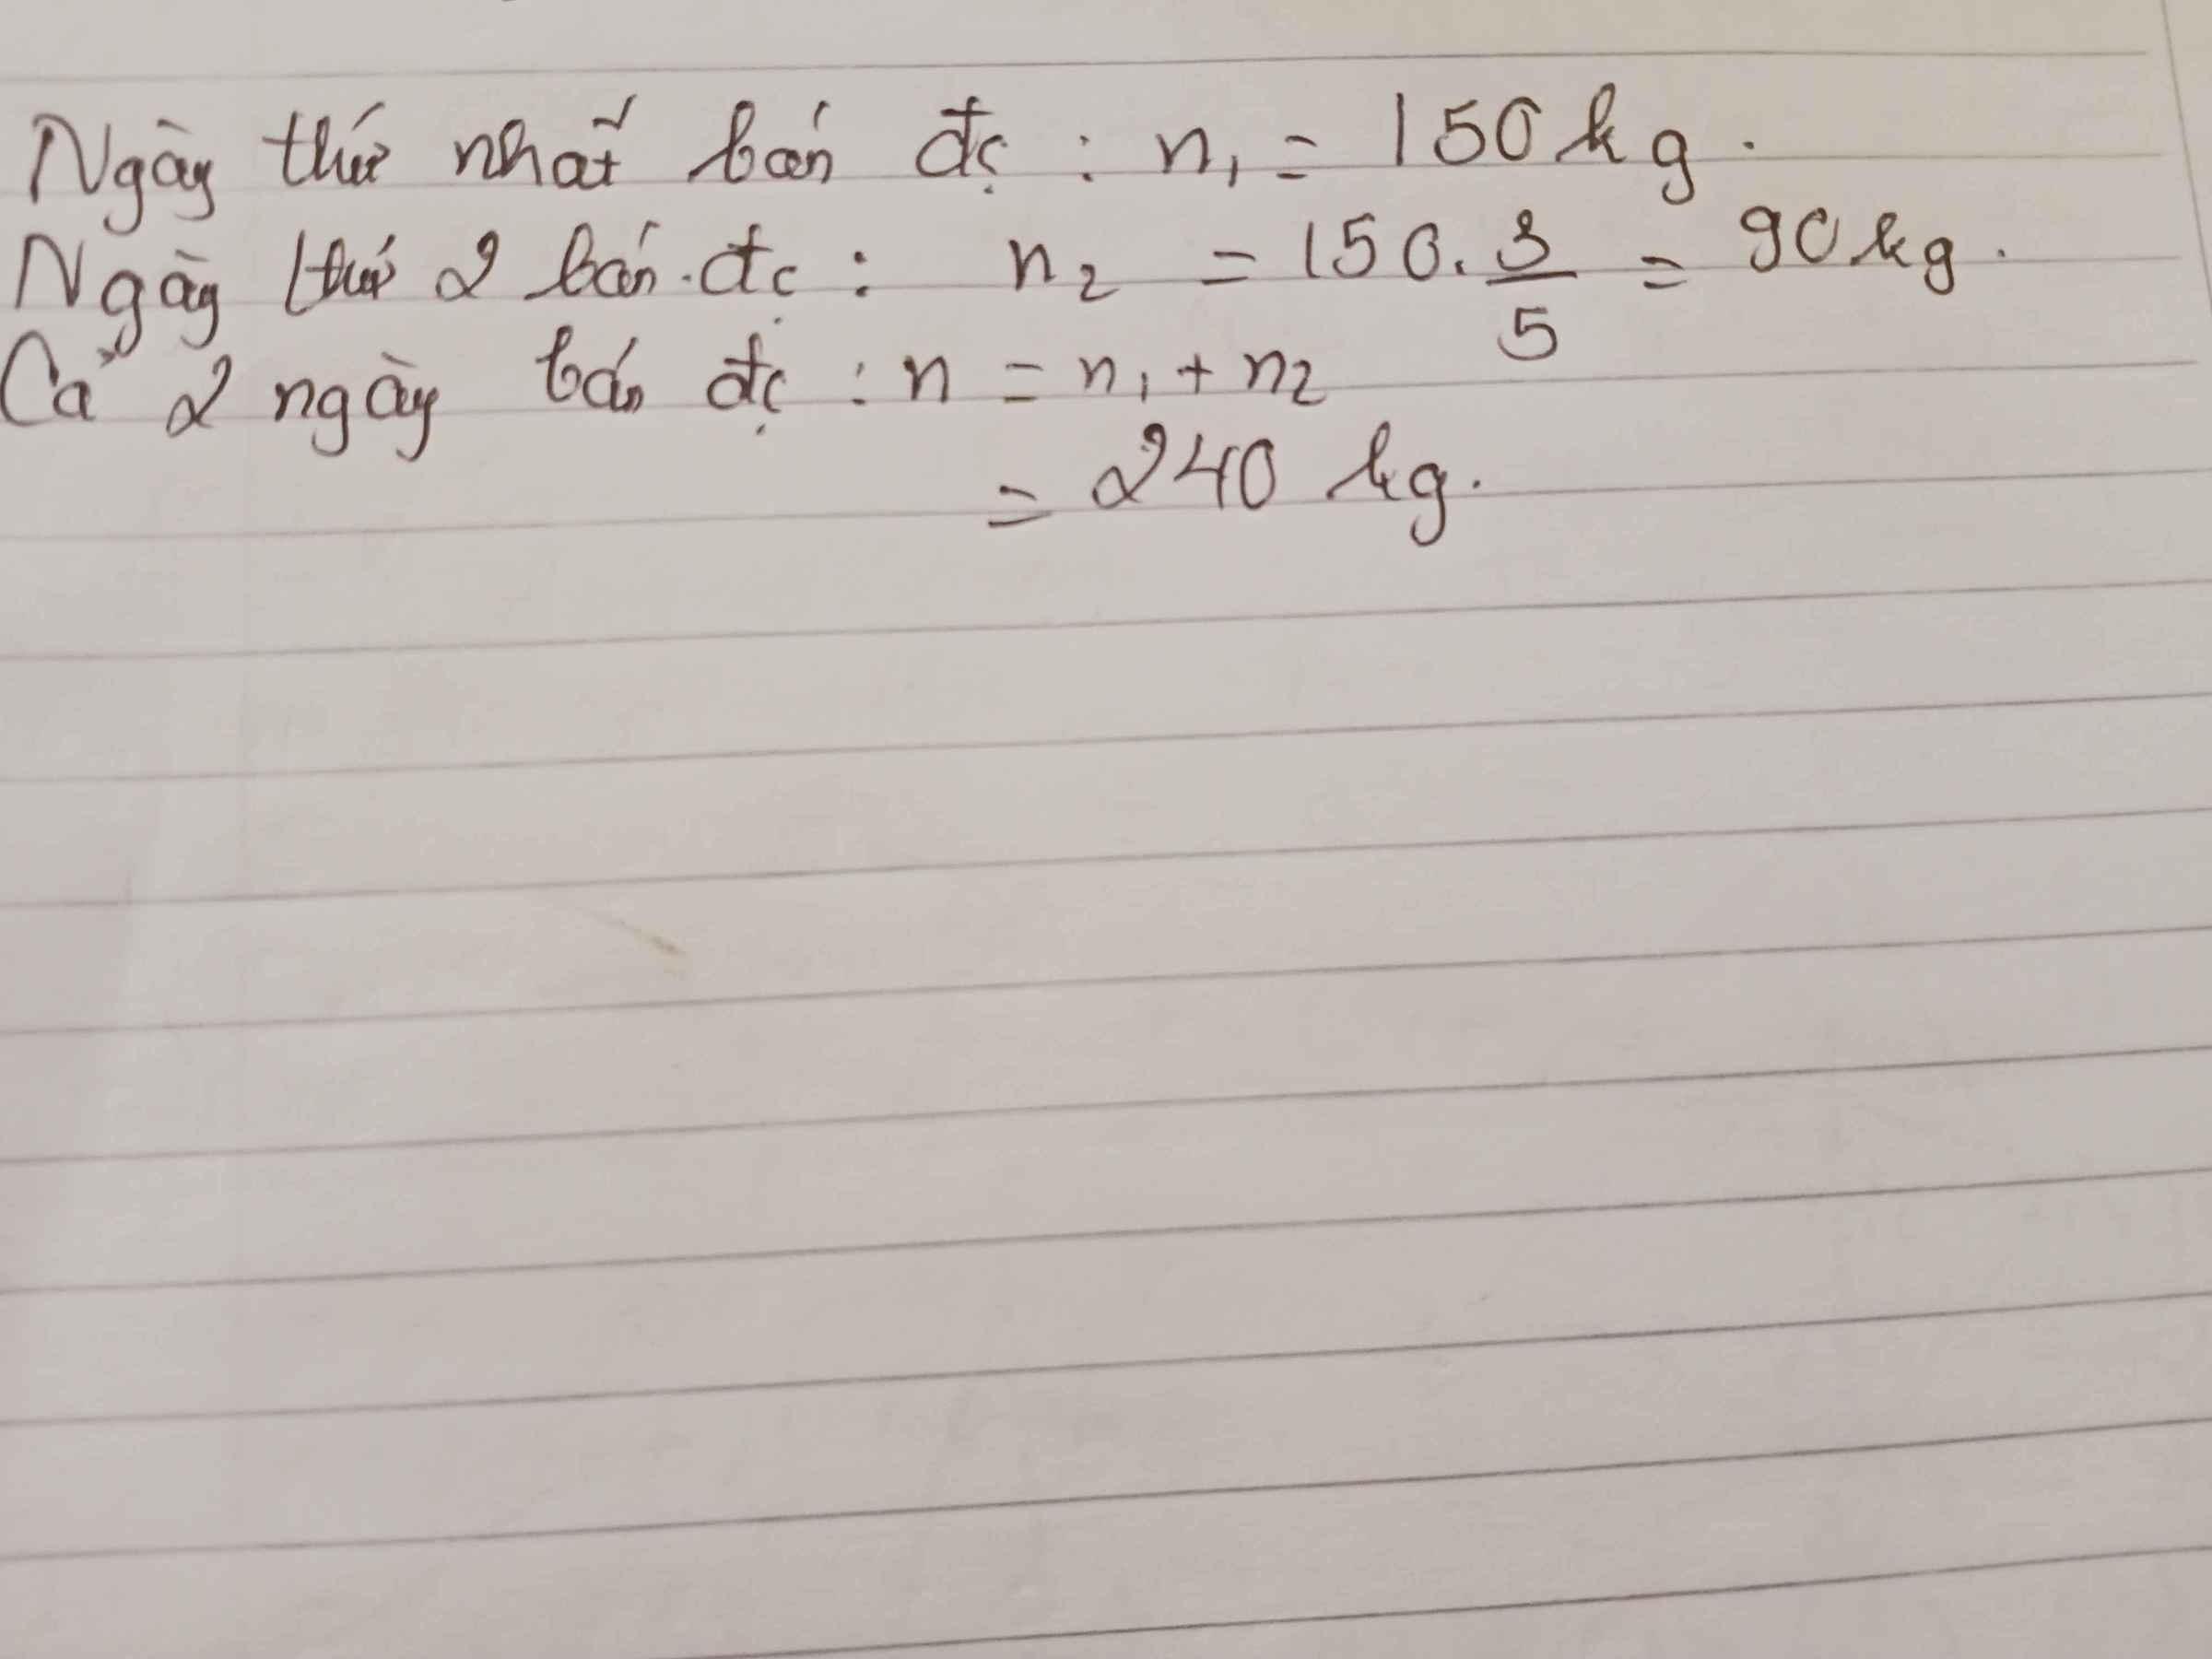 Ngày thứ nhất bán đc : n₁ = 150 kg.
Ngày thứ 2 bán đc : n₂ = 150. 3/5 = 90 kg.
Cả 2 ngày bán đc : n = n₁ + n₂
= 240 kg.